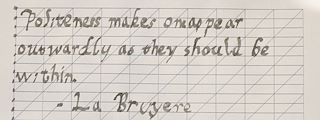 Politeness makes one appear
outwardly as they should be
within.
- La Bruyere